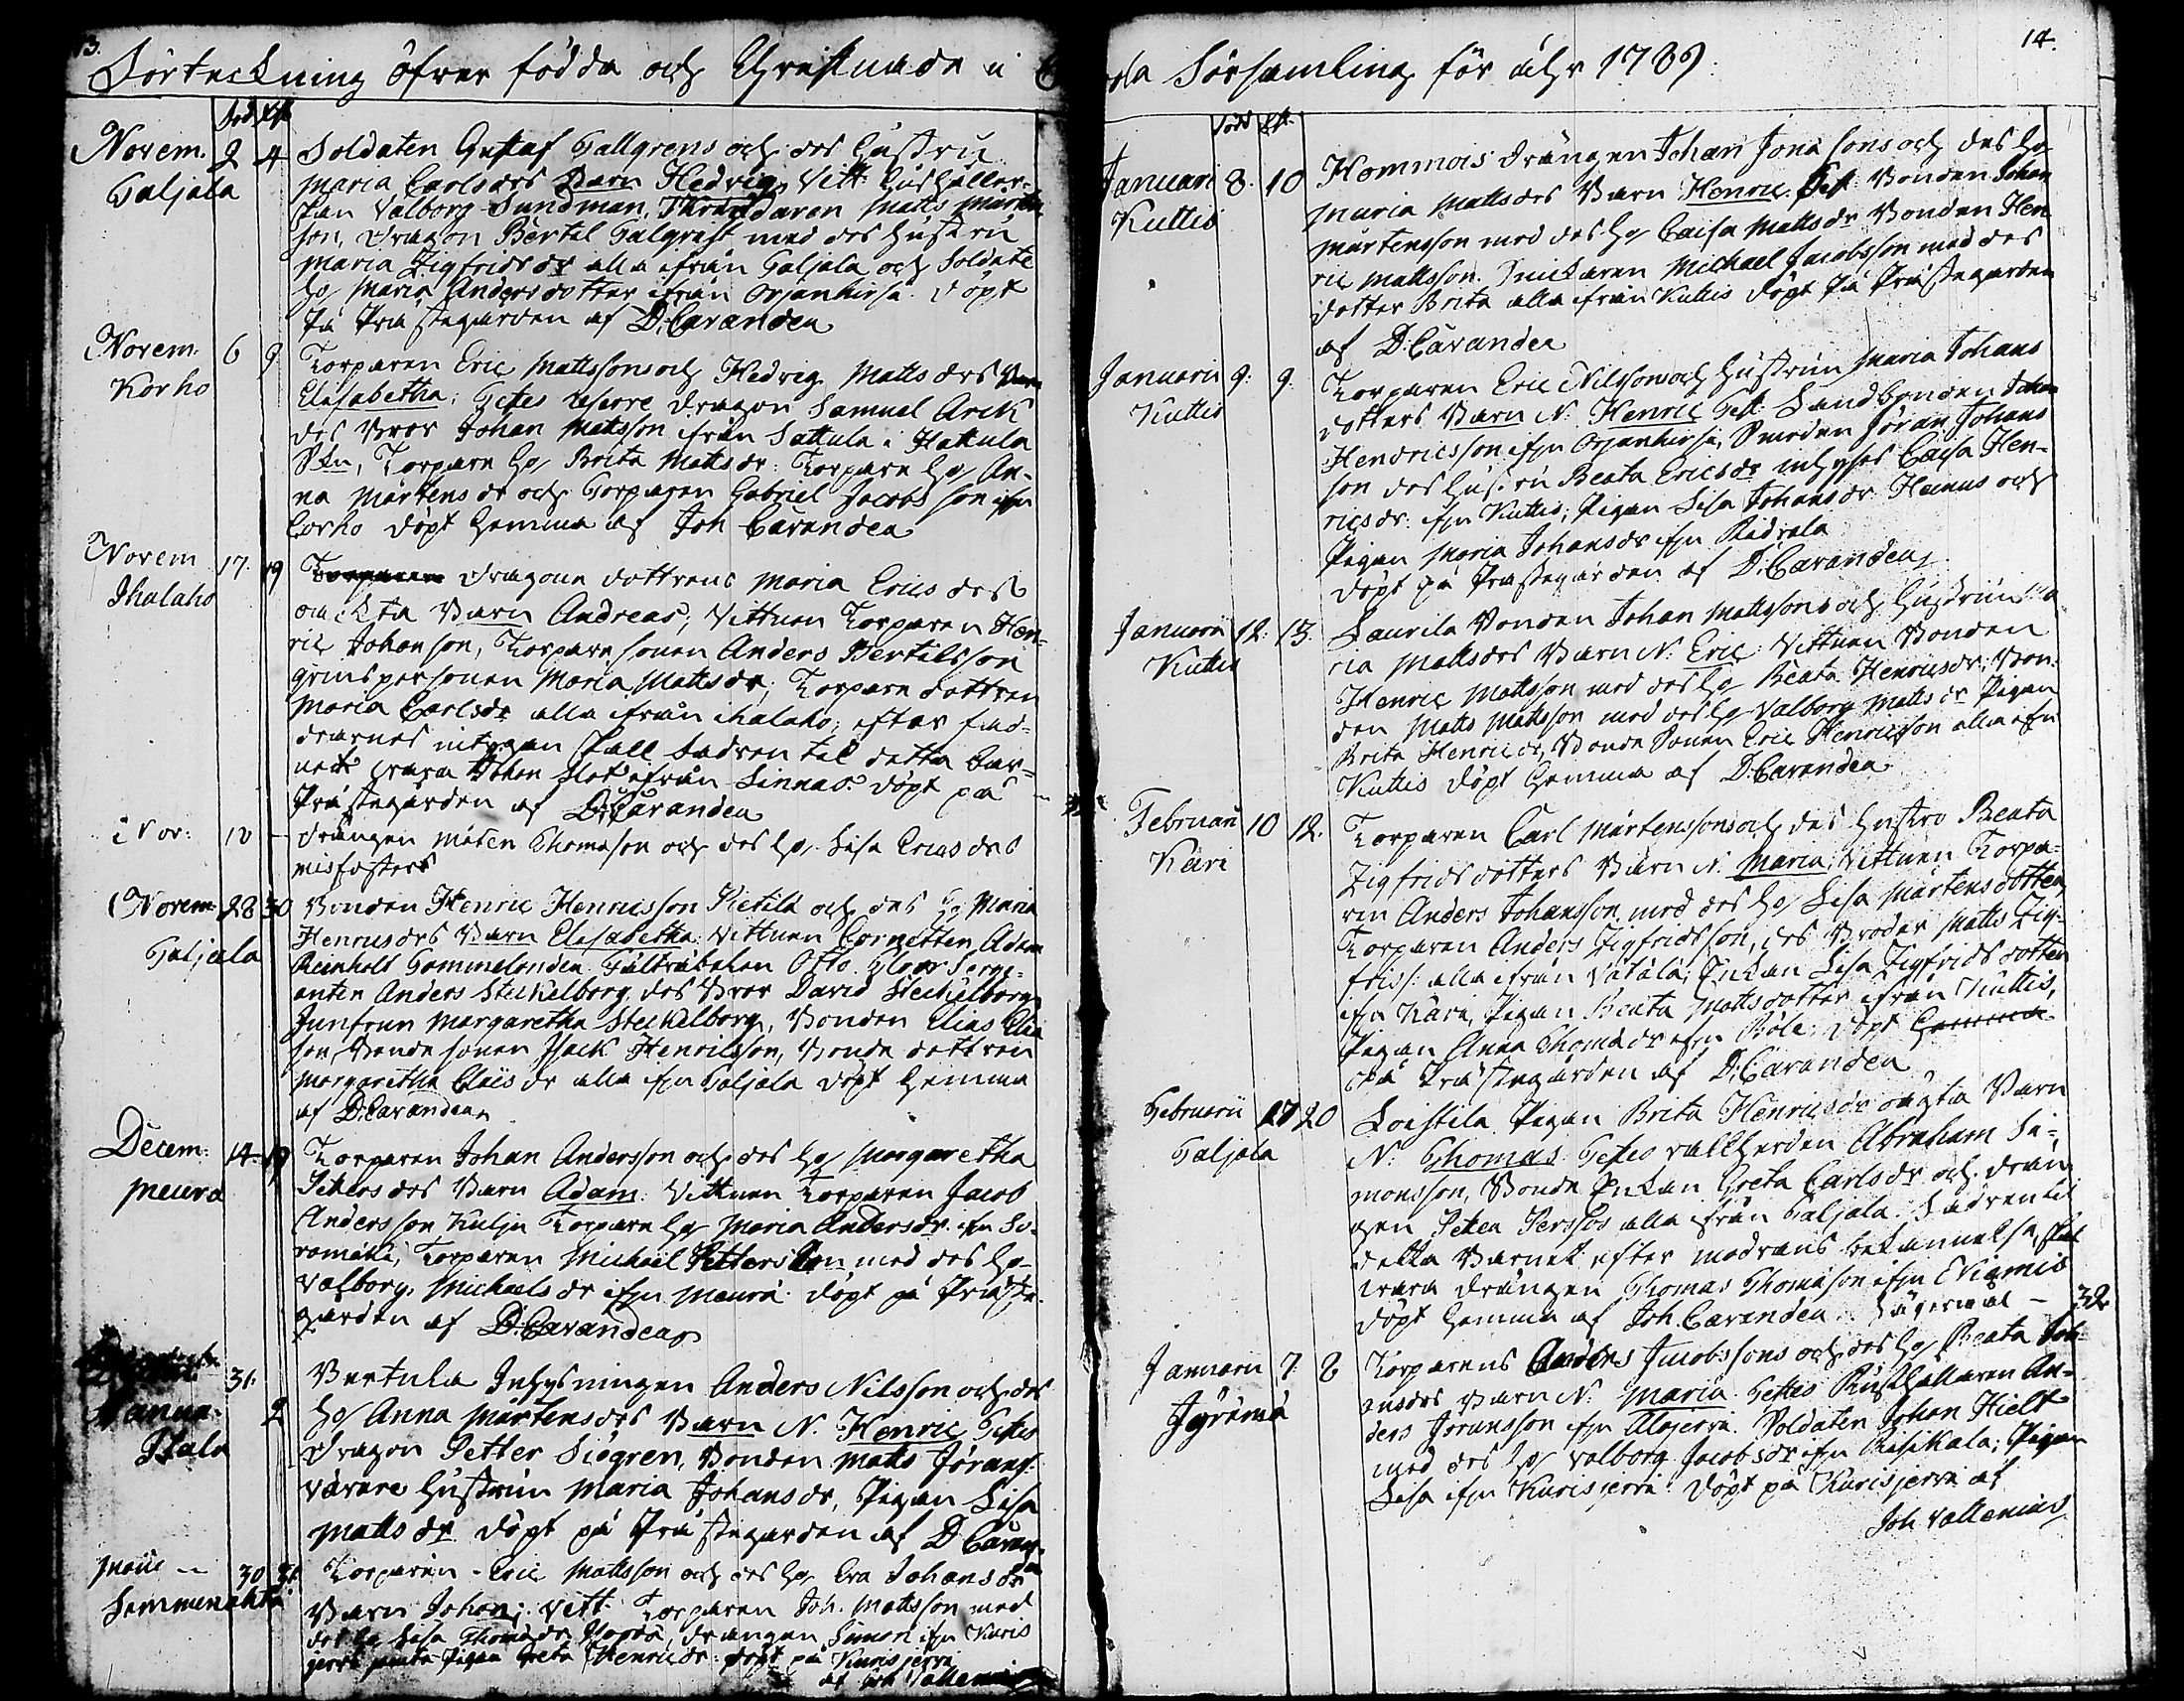 13.
Förteckning öfver födda och Christnade i
Född Xst
Novem. 2 4 Soldaten Gustaf Gallgrens och des hustru
Galjala Maria Carlsdrs Barn Hedvig, Vitt: hushåller-
skan Valborg Sundman, Matts Mårtens
son, Dragon Bertel Galqvist med des hustru
Maria Zigfridsdr alla ifrån Galjala och Soldate
h. Maria Andersdotter ifrån Orjanhirsi. döpt
På Prästegården af D: Cavander
Novem. 6 9. Torparen Eric Mattssons och Hedvig Mattsdrs Barn
Korho Elisabetha: Testes Dragon Samuel Arck
des Bror Johan Mattsson ifrån Sattula i Hattula
Skn, Torpare h. Brita Mattsdr: Torpare h. An-
na Mårtensdr och Torparen Gabriel Jacobsson ifrn
Corho döpt hemma af Joh Cavander
Novem 17. 19 Torparen Dragone dottrens Maria Ericsdrs
Ihalaho oäckta Barn Andreas; Vittnen Torparen Hen-
ric Johanson, Torpare sonen Anders Bertilsson
qvinspersonen Maria Mattsdr; Torpare dottren
Maria Carlsdr alla ifrån ihalaho; efter fad-
drarnes intygan skall fadren til detta bar-
net vara Johan Slot ifrån Sinnas. döpt på
Prästegården af D: Cavander
Nov: 18 — Drängen Måten Thomason och des h. Lisa Ericsdrs
misfoster
Novem 28 30 Bonden Henric Henricsson Pietilä och des h. Maria
Galjala Henricsdrs Barn Elisabetha: Vittnen Cornetten Adam
Reinholt Gommelonden. Fältväbelen Otto Serge-
anten Anders Steckelborg, des Bror David Steckelborg
Junfrun Margaretha Steckelborg, Bonden Elias Elia
son, Bonde sonen Isack Henricsson, Bonde dottren
Margaretha Claesdr alla ifrn Galjala döpt hemma
af D: Cavander
Decem: 14. 19 Torparen Johan Andersson och des h. Margaretha
Meurä Petersdrs Barn Adam: Vittnen Torparen Jacob
Andersson Kulju Torpare h. Maria Andersdr ifrn So-
romäki, Torparen Michael Pettersson med des h.
Valborg Michaelsdr ifrn Meurä. döpt på Präste-
gården af D: Cavander
31. Bertula Inhysningen Anders Nilsson och des
Janua. 2 h. Anna Mårtensdrs Barn N. Henric Testes
Itala Dragon Petter Siögren, Bonden Matts Jörans
värare hustrun Maria Johansdr, Pigan Lisa
Mattsdr döpt på Prästegården af D Cavan-
der
30 31 Torparen Eric Mattsson och des h. Eva Johansdr
Barn Johan; Vitt. Torparen Joh. Mattsson med
des h. Lisa Thomadr drängen Simon ifrn Kuris
jervi samt Pigan Greta Henricdr: döpt på Kurisjervi
af Joh Vallenius
14.
la Församling för åhr 1789.
Född Xst.
Januari 8. 10 Hommois Drängen Johan Jonasons och des h.
Kuttis Maria Mattsdrs Barn Henric. Test: Bonden Johan
Mårtensson med des h. Caisa Mattsdr Bonden Hen
ric Mattsson. Snickaren Michael Jacobsson med des
dotter Brita alla ifrån Kuttis döpt På Prästegården
af D: Cavander
Januarii 9. 9. Torparen Eric Nilssons och hustrun Maria Johans
Kuttis dotters Barn N. Henric Test: Landbonden Johan
Hendricsson ifrn Orjanhirsi, Smeden Jöran Johans
son des hustru Beata Ericsdr inhyses Caisa Hen-
ricsdr. ifrn Kuttis; Pigan Lisa Johansdr Heinus och
Pigan Maria Johansdr ifrn Ridvala
döpt på Prästegården af D: Cavander
Januarii 12. 13. Laurila Bonden Johan Mattssons och hustrun Ma
Kuttis ria Mattsdrs Barn N. Eric: Vittnen Bonden
Henric Mattsson med des h. Beata Henricsdr; Bon-
den Matts Mattsson med des h. Valborg Mattsdr Pigan
Brita Henricdr, Bonde Sonen Eric Henricsson alla ifrn
Kuttis döpt hemma af D: Cavander
Februari 10 12. Torparen Carl Mårtenssons och des hustru Beata
Kari Zigfridsdotters Barn N. Maria; Vittnen Torpa-
ren Anders Johansson med des h. Lisa Mårtensdotter
Torparen Anders Zigfridsson, des Broder Matts Zig-
frids: alla ifrån Vätälä; Enkan Lisa Zigfridsdotter
ifrn Kari, Pigan Beata Mattsdotter ifrån Kuttis,
Pigan Anna Thomadr ifrn Böle: döpt hemma
på Prästegården af D: Cavander
Februarii 17 20 Loistila Pigan Brita Henricsdr oägta Barn
Galjala N: Thomas Testes vallherden Abraham Si-
monsson, Bonde Enkan Greta Carlsdr och drän
gen Petter Persson alla ifrån Galjala: Fadren til
detta Barnet efter modrens bekännelse, skal
vara drängen Thomas Thomason ifrn Ekiamis
döpt hemma af Joh. Cavander. — 32
Januarii 7. 8 Torparens Anders Jacobssons och des h. Beata Joh
ansdrs Barn N: Maria Testes Rusthållaren An-
ders Joransson ifrn Alajervi. Soldaten Johan Hielt
med des h. Valborg Jacobsdr ifrn Risikala; Pigan
Lisa ifrn Kurisjervi: döpt på Kurisjervi af
Joh Vallenius